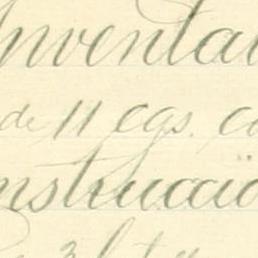 Inventa
de 11 cgs. c
nstrucció